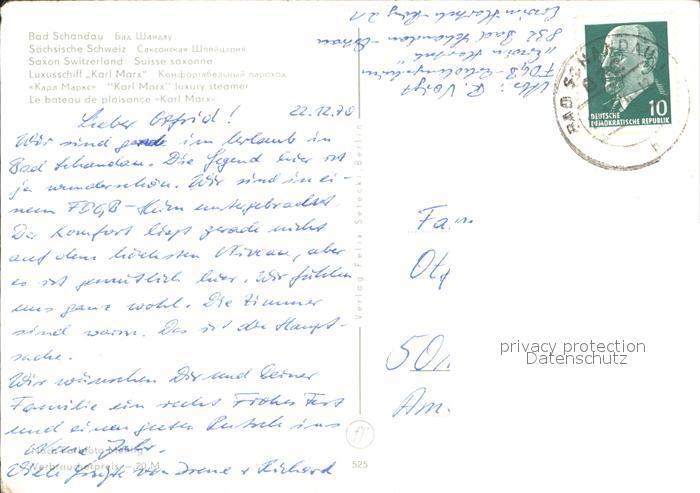 Bad Schandau Бад Шандау
Sächsische Schweiz Саксонская Швейцария
Saxon Switzerland Suisse saxonne
Luxusschiff „Karl Marx“ Комфортабельный пароход
«Карл Маркс» "Karl Marx" luxury steamer
Le bateau de plaisance «Karl Marx»
Lieber Otfrid! 22.12.70
Wir sind gerade im Urlaub in
Bad Schandau. Die Gegend hier ist
ja wunderschön. Wir sind in ei-
nem FDGB-Heim untergebracht.
Der Komfort liegt gerade nicht
auf dem höchsten Niveau, aber
es ist gemütlich hier. Wir fühlen
uns ganz wohl. Die Zimmer
sind warm. Das ist die Haupt-
sache.
Wir wünschen Dir und Deiner
Familie ein recht Frohes Fest
und einen guten Rutsch ins
Neue Jahr.
Viele Grüße von Irene + Richard
Verbraucherpreis — 20 M
Verlag Felix Setecki Berlin
525
Abs.: R. Voigt
FDGB-Erholungsheim
832 Bad Schandau-Ostrau
BAD SCHANDAU
10
DEUTSCHE
DEMOKRATISCHE REPUBLIK
Fa
Otf
50
Am
privacy protection
Datenschutz